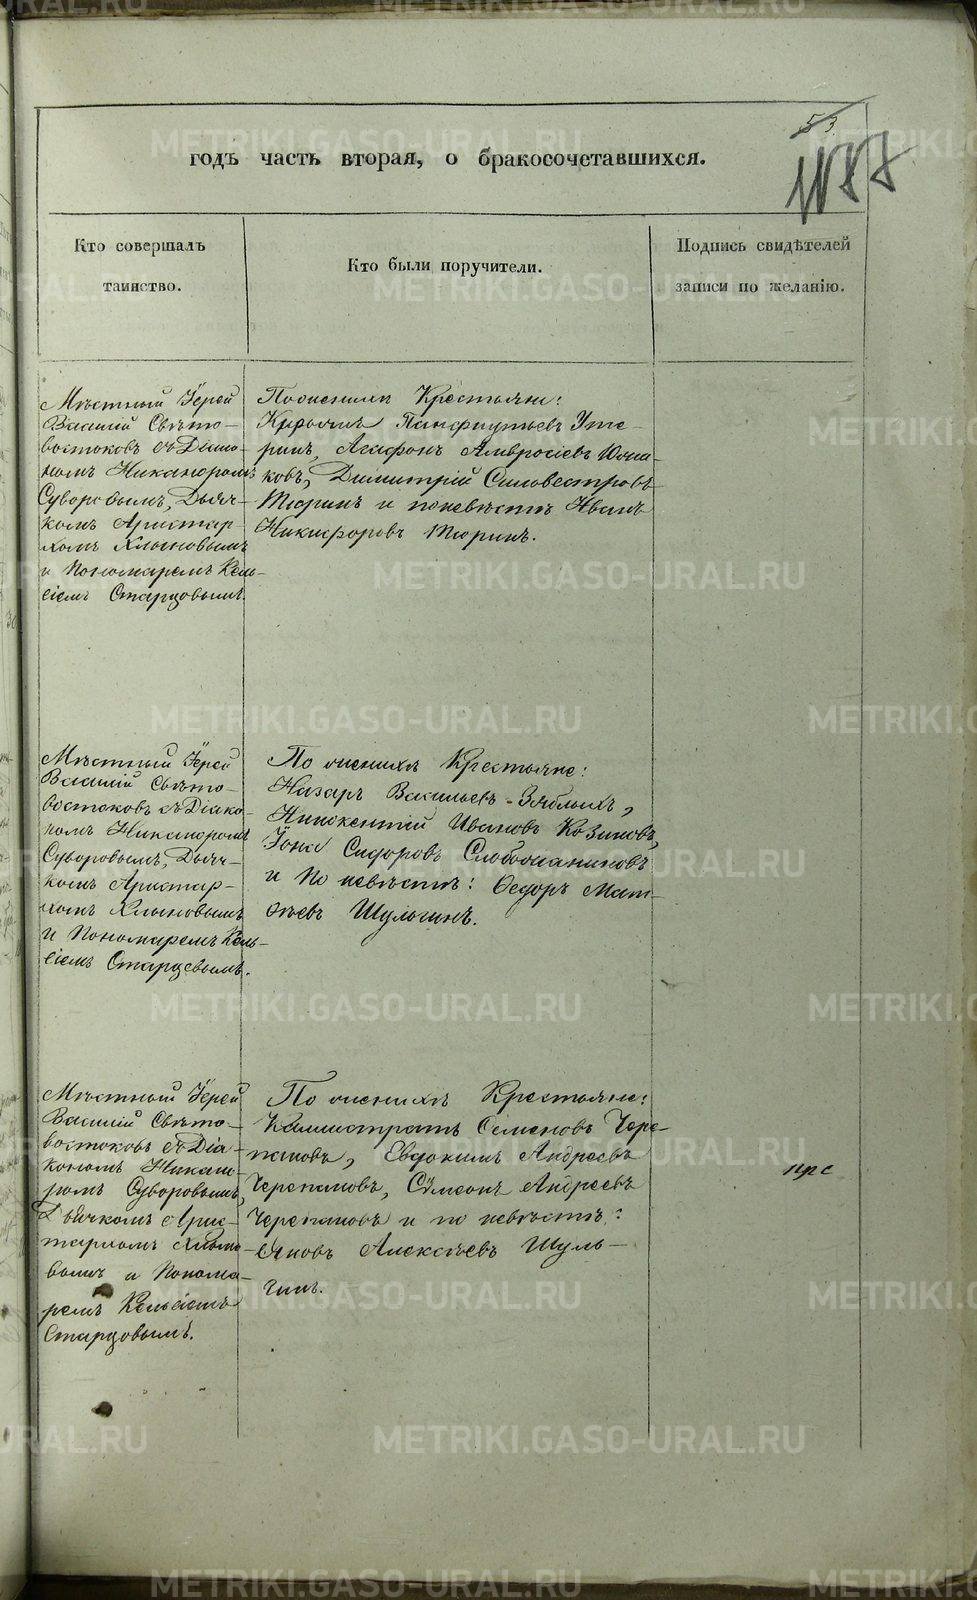 53
годъ часть вторая, о бракосочетавшихся.
Кто совершалъ
таинство.
Кто были поручители.
Подпись свидѣтелей
записи по желанію.
Мѣстный Іерей
Василій Свѣто-
востоковъ съ Діако-
номъ Никаноромъ
Суворовымъ, Дьяч-
комъ Аристар-
хомъ Хлыновымъ
и Пономаремъ Кель-
сіемъ Старцовымъ.
По женихѣ Крестьяне:
Панфутьевъ
Агафонъ Амвросіевъ Юша-
ковъ, Димитрій Силовестровъ
Тюринъ и по невѣстѣ Иванъ
Никифоровъ Тюринъ.
Мѣстный Іерей
Василій Свѣто-
востоковъ съ Діако-
номъ Никаноромъ
Суворовымъ, Дьяч-
комъ Аристар-
хомъ Хлыновымъ
и Пономаремъ Кель-
сіемъ Старцевымъ.
По женихѣ Крестьяне:
Назаръ Васильевъ Зяблыхъ,
Иннокентій Ивановъ Козиновъ,
Іона Сидоровъ
и по невѣстѣ: Ѳедоръ Мат-
ѳѣевъ Шульгинъ.
Мѣстный Іерей
Василій Свѣто-
востоковъ съ Діа-
кономъ Никано-
ромъ Суворовымъ,
Дьячкомъ Арис-
тархомъ Хлыно-
вымъ и Понома-
ремъ Кельсіемъ
Старцовымъ.
По женихѣ Крестьяне:
Каллистратъ Семеновъ Чере-
пановъ, Евдокимъ Андреевъ
Черепановъ, Сѵмеонъ Андреевъ
Черепановъ и по невѣстѣ:
Яковъ Алексѣевъ Шуль-
гинъ.
METRIKI.GASO-URAL.RU